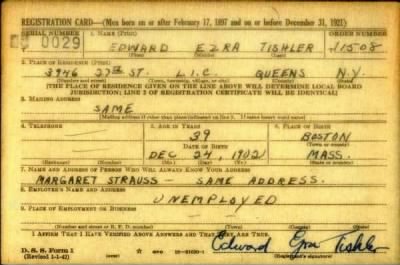 REGISTRATION CARD—(Men born on or after February 17, 1897 and on or before December 31, 1921)
SERIAL NUMBER 1. NAME (Print) ORDER NUMBER
0029 EDWARD EZRA TISHLER 11508
(First) (Middle) (Last)
2. PLACE OF RESIDENCE (Print)
3946 27TH ST. L.I.C. QUEENS N.Y.
(Number and street) (Town, township, village, or city) (County) (State)
[THE PLACE OF RESIDENCE GIVEN ON THE LINE ABOVE WILL DETERMINE LOCAL BOARD
JURISDICTION; LINE 2 OF REGISTRATION CERTIFICATE WILL BE IDENTICAL]
3. MAILING ADDRESS
SAME
[Mailing address if other than place indicated on line 2. If same insert word same]
4. TELEPHONE 5. AGE IN YEARS 6. PLACE OF BIRTH
39 BOSTON
DATE OF BIRTH (Town or county)
DEC 24, 1902 MASS.
(Exchange) (Number) (Mo.) (Day) (Yr.) (State or country)
7. NAME AND ADDRESS OF PERSON WHO WILL ALWAYS KNOW YOUR ADDRESS
MARGARET STRAUSS — SAME ADDRESS.
8. EMPLOYER'S NAME AND ADDRESS
UNEMPLOYED
9. PLACE OF EMPLOYMENT OR BUSINESS
(Number and street or R. F. D. number) (Town) (County) (State)
I AFFIRM THAT I HAVE VERIFIED ABOVE ANSWERS AND THAT THEY ARE TRUE.
D. S. S. Form 1 Edward Ezra Tishler
(Revised 1-1-42) (Registrant's signature)